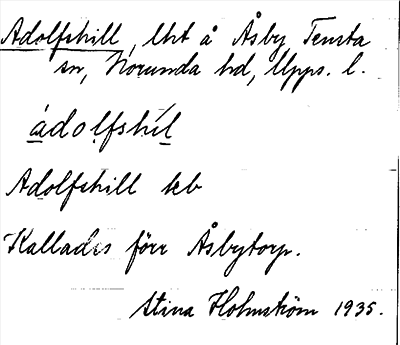 Adolfshill, lht å Åsby Tensta
sn, Norunda hd, Upps. l.
ádolfshìl
Adolfshill ieb
Kallades förr Åsbytorp.
Stina Holmström 1935.